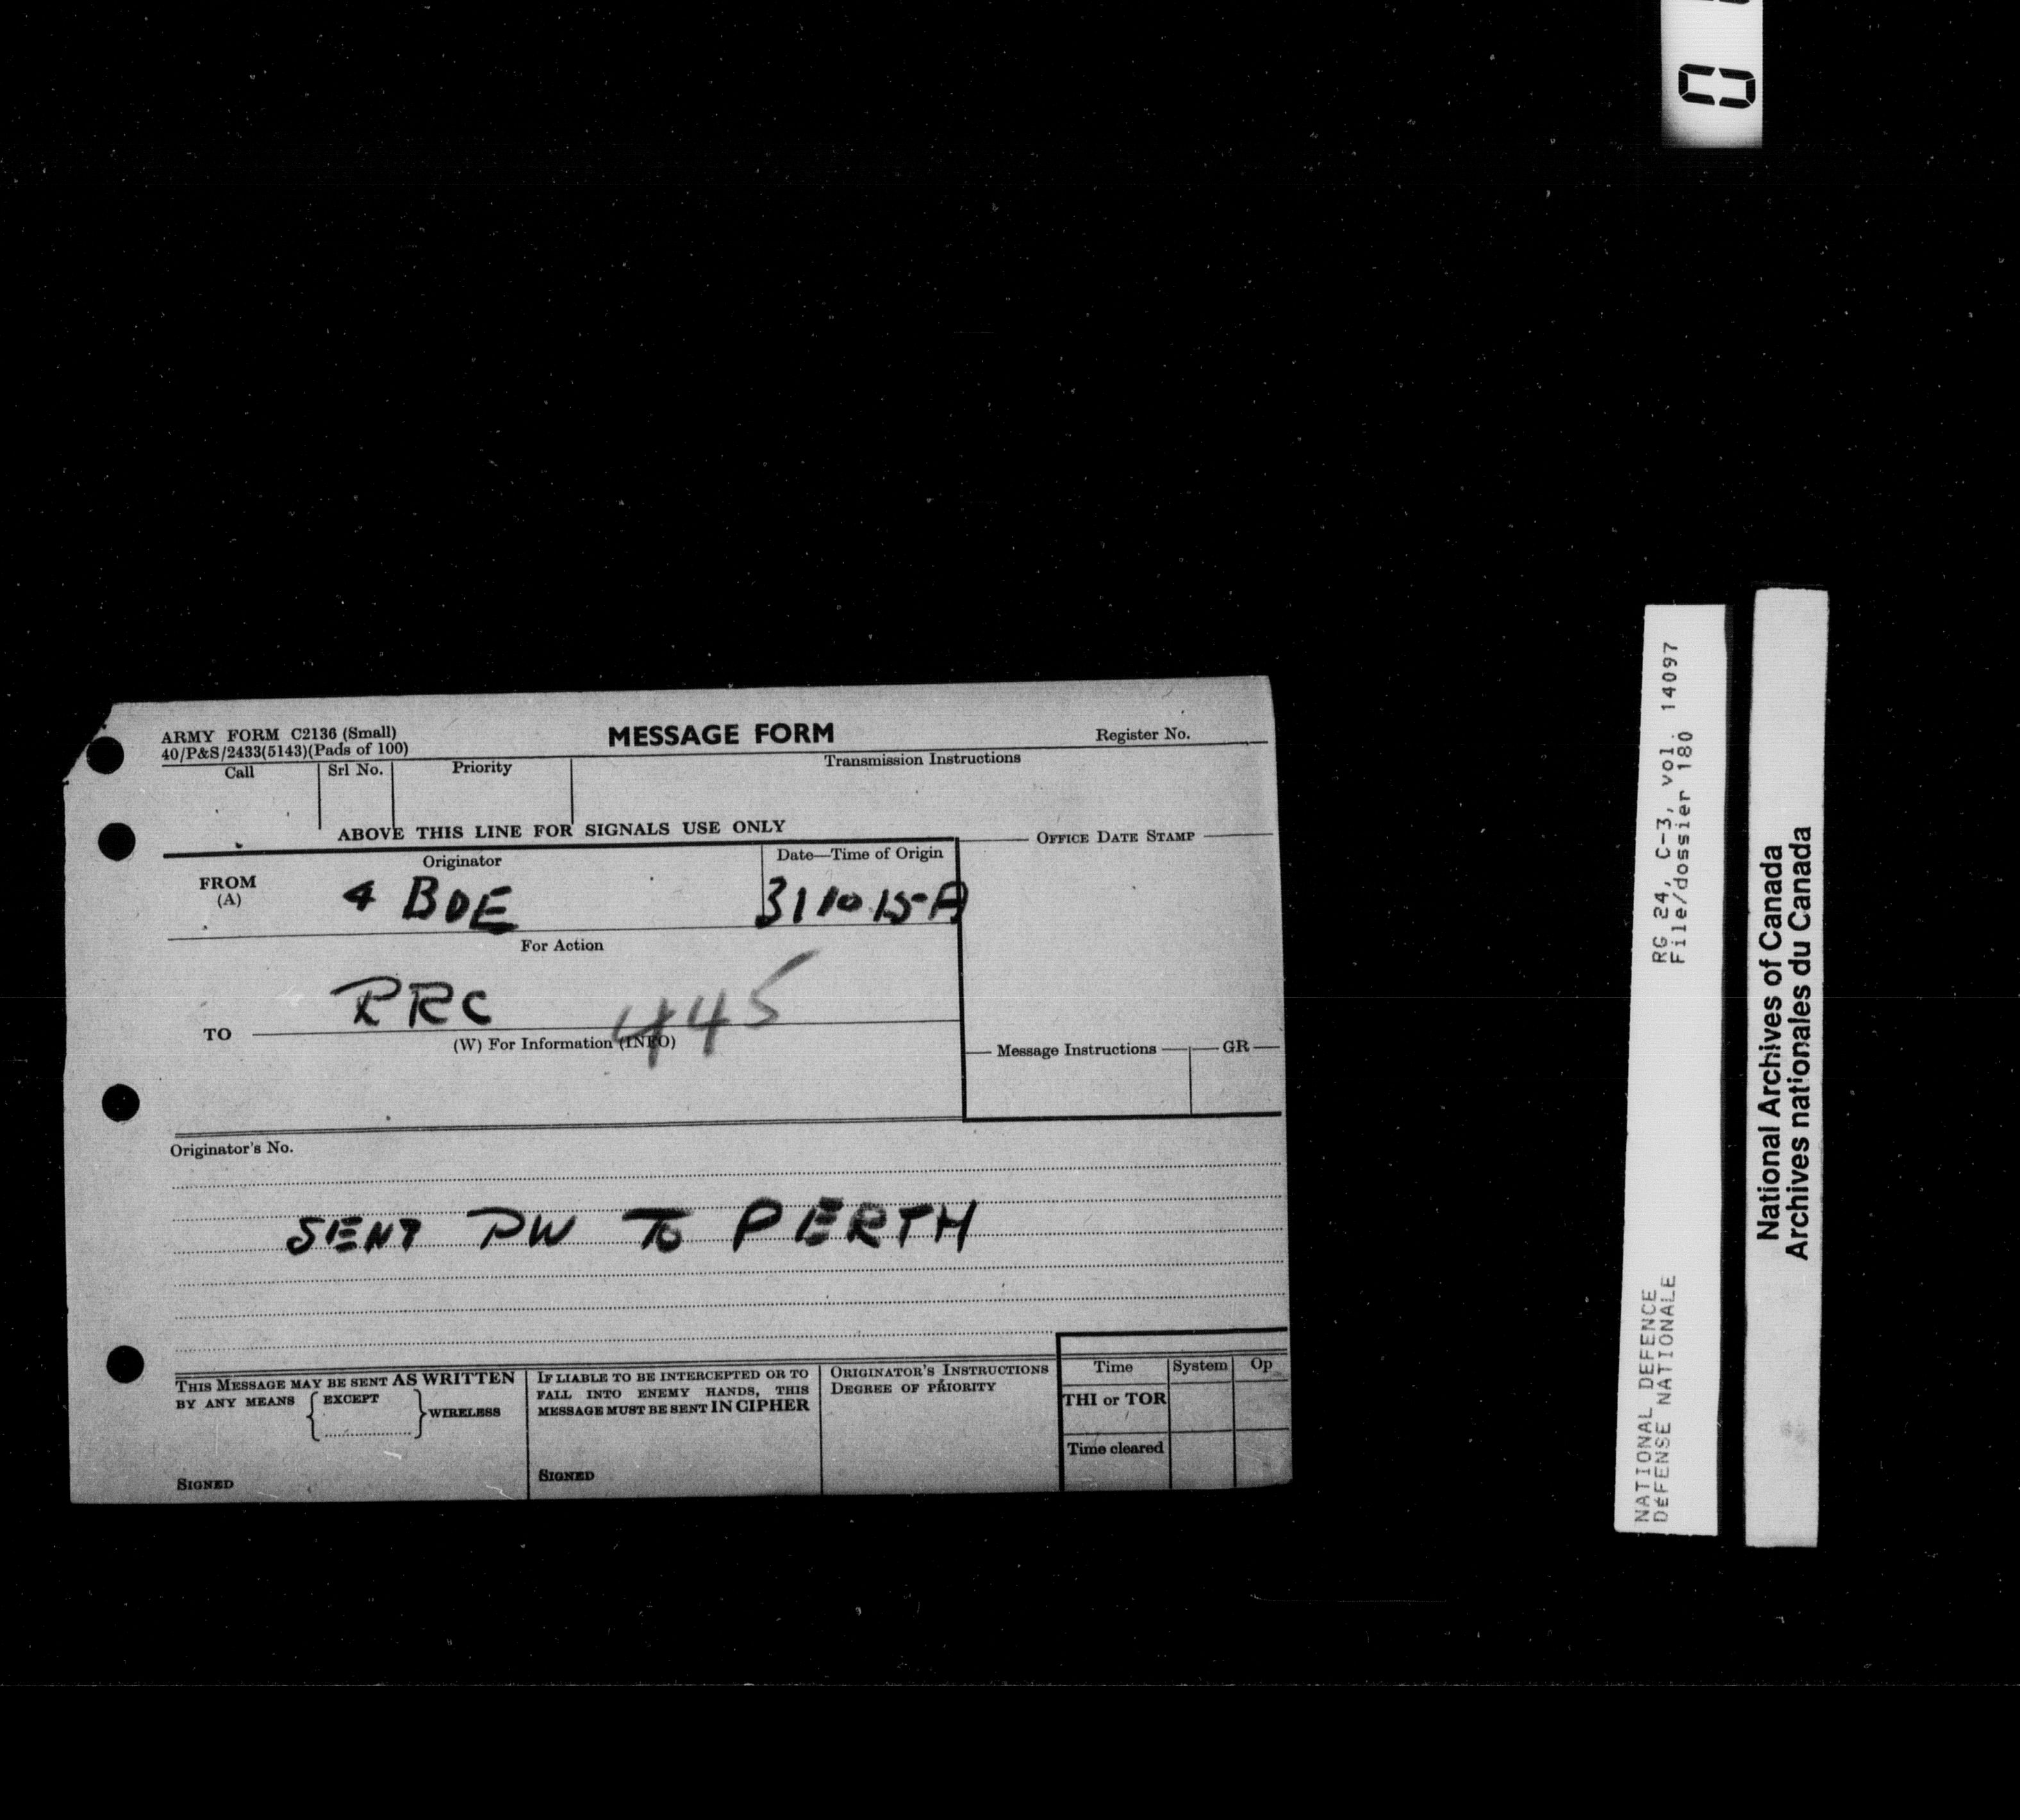 ARMY FORM C2136 (Small)
40/P&S/2433(5143)(Pads of 100)
MESSAGE FORM
Register No.
Call
Srl No.
Priority
Transmission Instructions
ABOVE THIS LINE FOR SIGNALS USE ONLY
OFFICE DATE STAMP
FROM
(A)
Originator
4 BDE
Date—Time of Origin
311015A
For Action
RRC
445
TO
(W) For Information (INFO)
Message Instructions
GR
Originator's No.
SENT PW TO PERTH
THIS MESSAGE MAY BE SENT AS WRITTEN
BY ANY MEANS
EXCEPT
WIRELESS
SIGNED
IF LIABLE TO BE INTERCEPTED OR TO
FALL INTO ENEMY HANDS, THIS
MESSAGE MUST BE SENT IN CIPHER
SIGNED
ORIGINATOR'S INSTRUCTIONS
DEGREE OF PRIORITY
Time
System
Op
THI or TOR
Time cleared
NATIONAL DEFENCE
DéFENSE NATIONALE
RG 24, C-3, vol. 14097
File/dossier 180
National Archives of Canada
Archives nationales du Canada